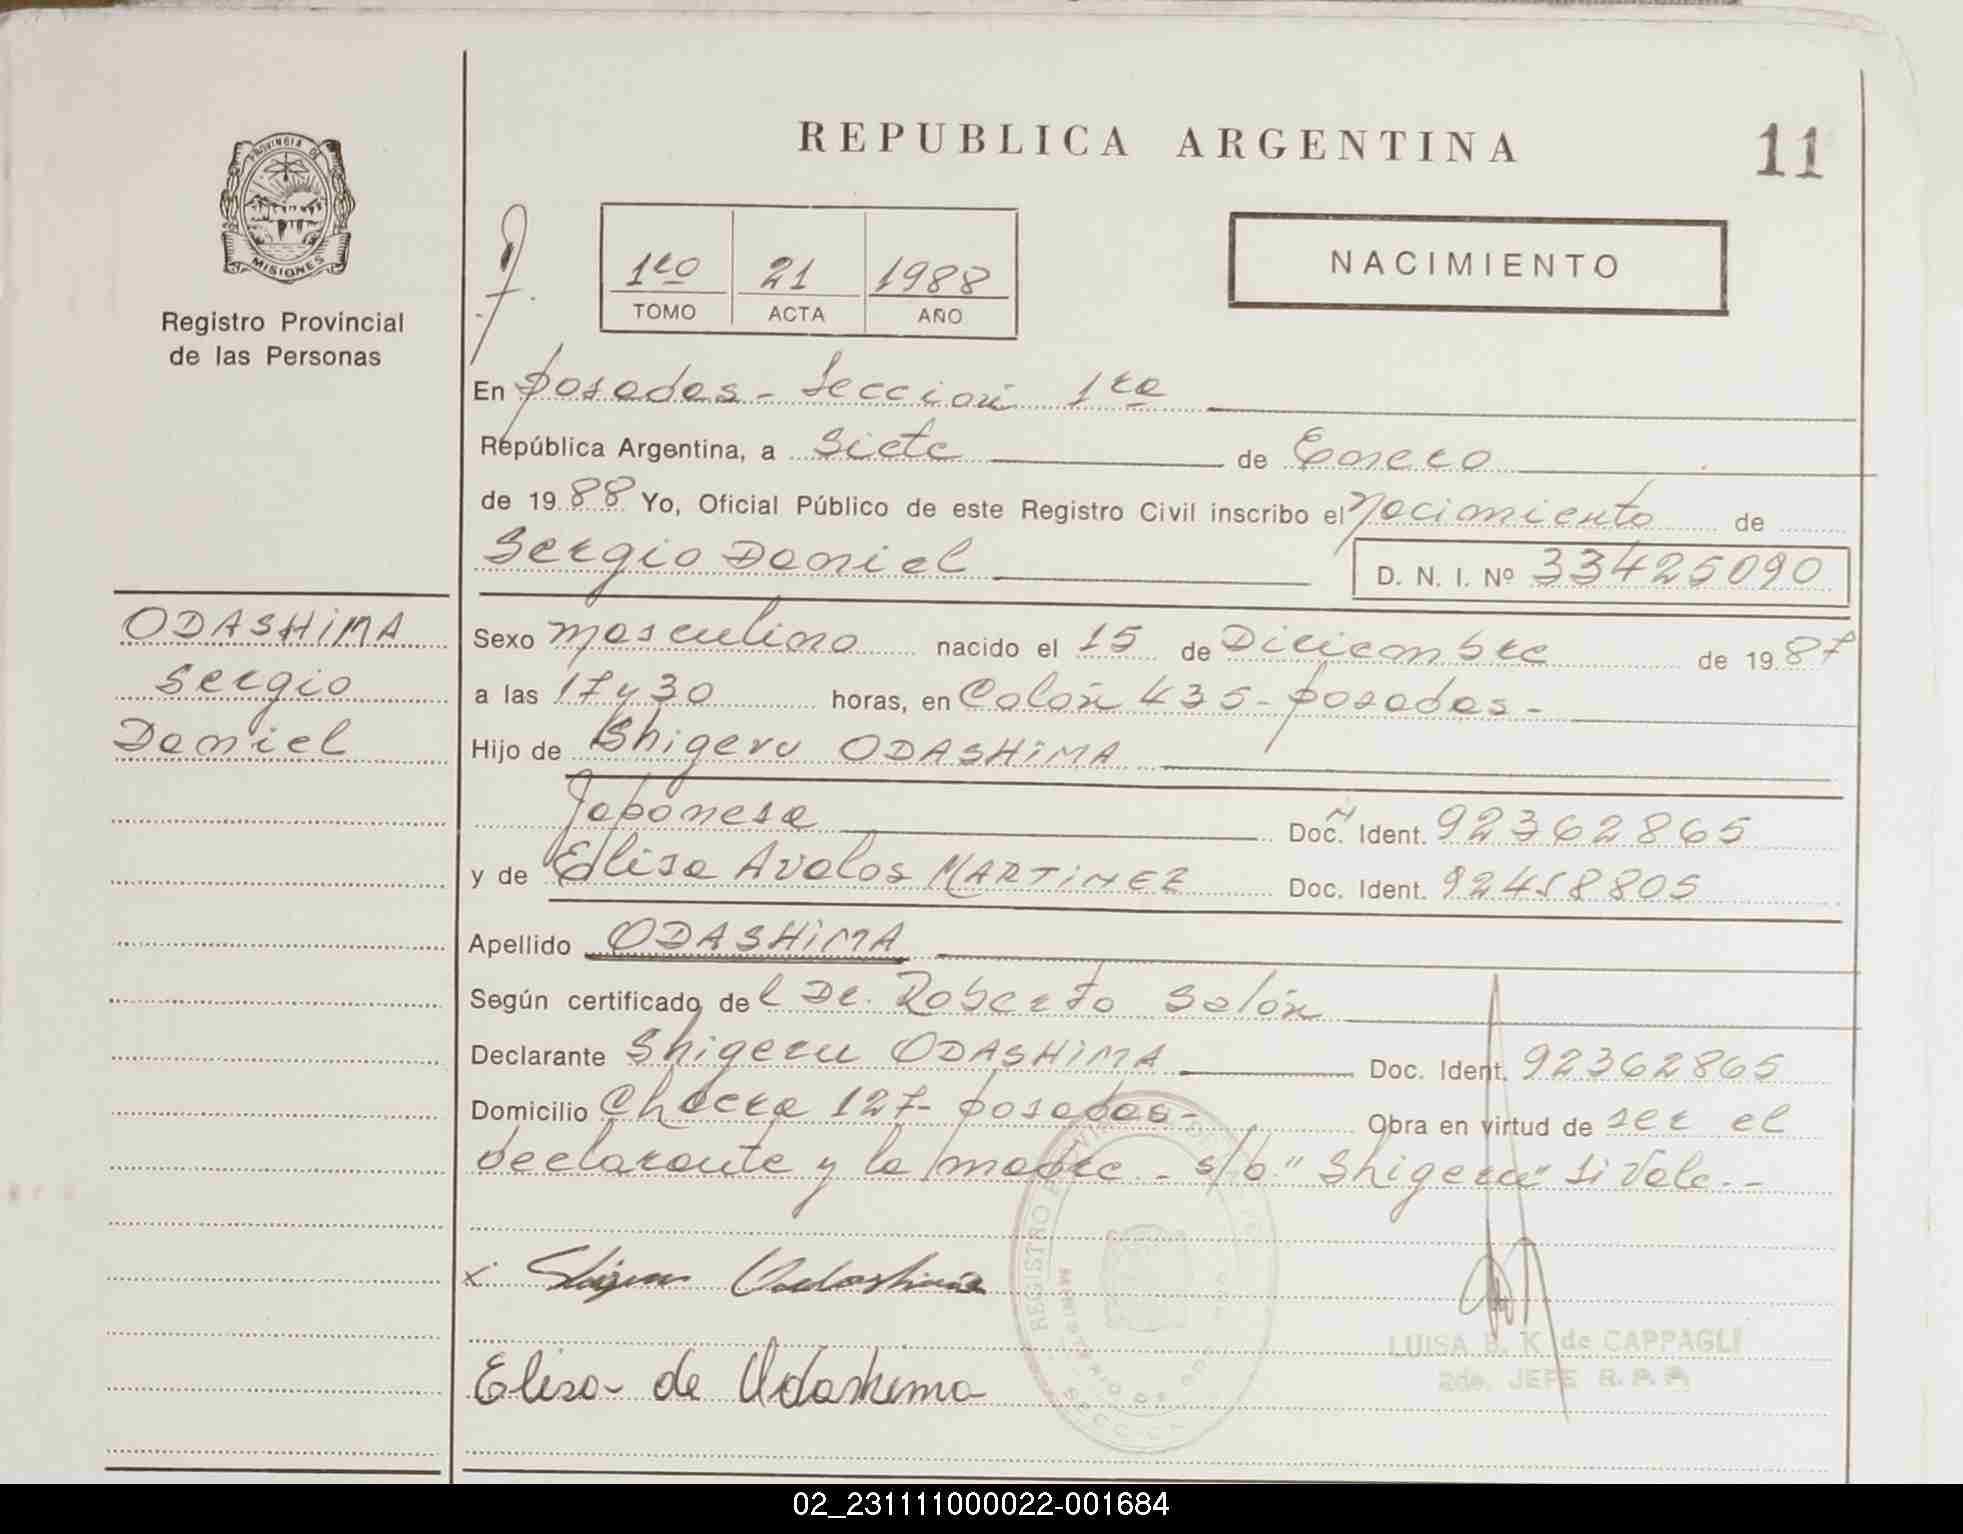 REPUBLICA ARGENTINA
11
PROVINCIA DE
MISIONES
Registro Provincial
de las Personas
1ro 21 1988
TOMO ACTA AÑO
NACIMIENTO
En Posadas - Sección 1ra
República Argentina, a Siete de Enero
de 1988 Yo, Oficial Público de este Registro Civil inscribo el Nacimiento de
Sergio Daniel D. N. I. Nº 33425090
ODASHIMA
Sergio
Daniel
Sexo masculino nacido el 15 de Diciembre de 1987
a las 17 y 30 horas, en Colón 435 - Posadas -
Hijo de Shigeru ODASHIMA
Japonesa Doc. Ident. 92362865
y de Elisa Avalos MARTINEZ Doc. Ident. 92458805
Apellido ODASHIMA
Según certificado del Dr. Roberto Salón
Declarante Shigeru ODASHIMA Doc. Ident. 92362865
Domicilio Chacra 127 - Posadas - Obra en virtud de ser el
declarante y la madre - s/b "Shigeru" Si Vale. -
x Shigeru Odashima
Elisa de Odashima
LUISA B. K. de CAPPAGLI
2do. JEFE R. P. P.
02_231111000022-001684